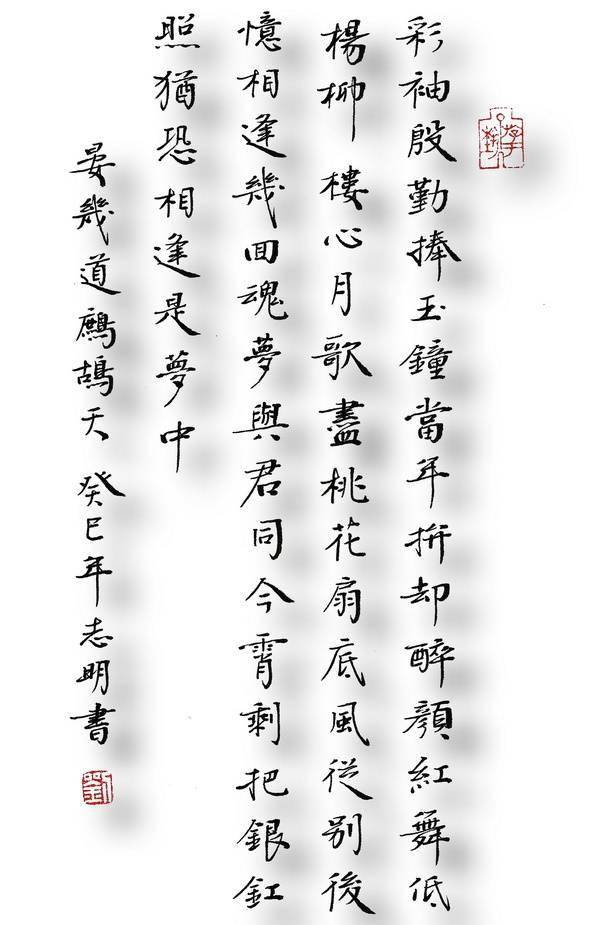 彩袖殷勤捧玉鐘當年拼却醉顏紅舞低
楊柳樓心月歌盡桃花扇底風從別後
憶相逢幾回魂夢與君同今霄剩把銀釭
照猶恐相逢是夢中
晏幾道鷓鴣天 癸巳年志明書
劉